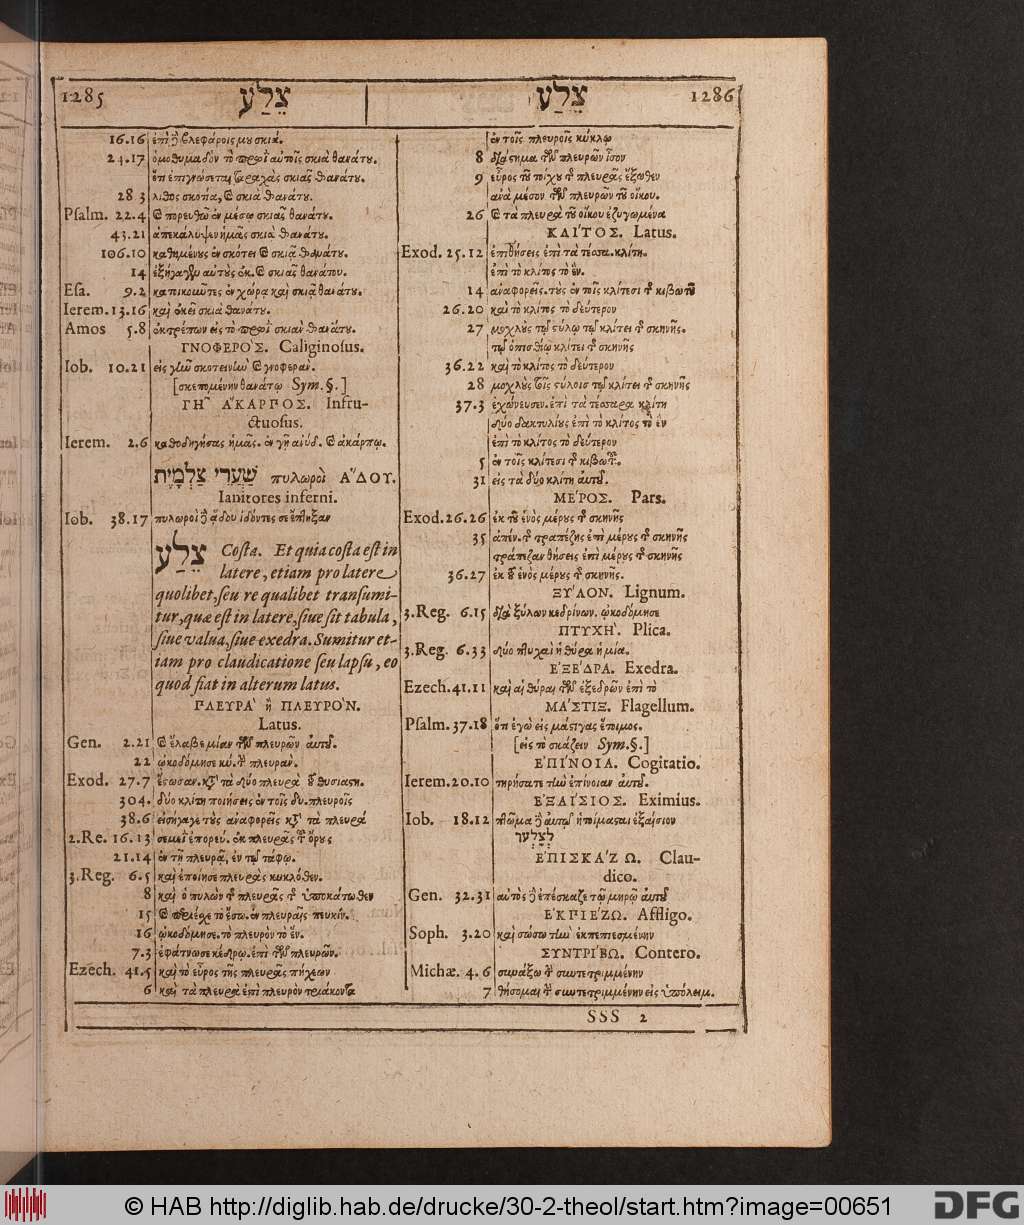 1285 צֵלַע
16.16 ἐπὶ ἢ βλεφάροις μου σκιά.
24.17 ὁμοθυμαδὸν τὸ πρωῒ αὐτοῖς σκιὰ θανάτου.
ὅτι ἐπιγνώσεται ταραχὰς σκιᾶς θανάτου.
28 3 λίθος σκοτία, καὶ σκιὰ θανάτου.
Psalm. 22.4 καὶ πορευθῶ ἐν μέσῳ σκιᾶς θανάτου.
43.21 ἀπεκάλυψεν ἡμᾶς σκιὰ θανάτου.
106.10 καθημένους ἐν σκότει καὶ σκιᾷ θανάτου.
14 ἐξήγαγεν αὐτοὺς ἐκ. καὶ σκιᾶς θανάτου.
Esa. 9.2 κατοικοῦντες ἐν χώρᾳ καὶ σκιᾷ θανάτου.
Ierem. 13.16 καὶ ἐκεῖ σκιὰ θανάτου.
Amos 5.8 ἐκτρέπων εἰς τὸ πρωῒ σκιὰν θανάτου.
ΓΝΟΦΕΡΟΣ. Caliginosus.
Iob. 10.21 εἰς γῆν σκοτεινὴν καὶ γνοφεράν.
[σκεπομένην θανάτῳ Sym.§.]
ΓΗ͂ ἌΚΑΡΠΟΣ. Infru-
ctuosus.
Ierem. 2.6 καθοδηγήσας ἡμᾶς. ἐν γῇ ἀνύδ. καὶ ἀκάρπῳ.
שַׁעֲרֵי צַלְמָוֶת πυλωροὶ ἍΔΟΥ.
Ianitores inferni.
Iob. 38.17 πυλωροὶ ἢ ᾅδου ἰδόντες σε ἔπτηξαν
צֵלַע Costa. Et quia costa est in
latere, etiam pro latere
quolibet, seu re qualibet transumi-
tur, quæ est in latere, siue sit tabula,
siue valua, siue exedra. Sumitur et-
iam pro claudicatione seu lapsu, eo
quod fiat in alterum latus.
ΠΛΕΥΡᾺ ἢ ΠΛΕΥΡΌΝ.
Latus.
Gen. 2.21 καὶ ἔλαβε μίαν τῶν πλευρῶν αὐτοῦ.
22 ᾠκοδόμησε κύ. τὴν πλευράν.
Exod. 27.7 ἔστωσαν. κατὰ τὰ δύο πλευρὰ τοῦ θυσιαστη.
304. δύο κλίτη ποιήσεις ἐν τοῖς δυ. πλευροῖς
38.6 εἰσήγαγε τοὺς ἀναφορεῖς κατὰ τὰ πλευρά
2.Re. 16.13 σεμεῒ ἐπορεύ. ἐκ πλευρᾶς τοῦ ὄρους
21.14 ἐν τῇ πλευρᾷ, ἐν τῷ τάφῳ.
3.Reg. 6.5 καὶ ἐποίησε πλευρὰς κυκλόθεν.
8 καὶ ὁ πυλὼν τῆς πλευρᾶς τῆς ὑποκάτωθεν
15 καὶ περιέσχε τὸ ἔσω. ἐν πλευραῖς πευκίν.
16 ᾠκοδόμησε. τὸ πλευρὸν τὸ ἕν.
7.3 ἐφάτνωσε κέδρῳ. ἐπὶ τῶν πλευρῶν.
Ezech. 41.5 καὶ τὸ εὖρος τῆς πλευρᾶς πήχεων
6 καὶ τὰ πλευρὰ ἐπὶ πλευρὸν τριάκοντα
צֵלַע 1286
ἐν τοῖς πλευροῖς κύκλῳ
8 διάστημα τῶν πλευρῶν ἴσον
9 εὖρος τοῦ τοίχου τῆς πλευρᾶς ἔξωθεν
ἀνὰ μέσον τῶν πλευρῶν τοῦ οἴκου.
26 καὶ τὰ πλευρὰ τοῦ οἴκου ἐζυγωμένα
ΚΛΊΤΟΣ. Latus.
Exod. 25.12 ἐπιθήσεις ἐπὶ τὰ τέσσα. κλίτη.
ἐπὶ τὸ κλίτος τὸ ἕν.
14 ἀναφορεῖς. τοὺς ἐν τοῖς κλίτεσι τῆς κιβωτοῦ
26.20 καὶ τὸ κλίτος τὸ δεύτερον
27 μοχλοὺς τῷ στύλῳ τῷ κλίτει τῆς σκηνῆς.
τῷ ὀπισθίῳ κλίτει τῆς σκηνῆς
36.22 καὶ τὸ κλίτος τὸ δεύτερον
28 μοχλοὺς τοῖς στύλοις τῷ κλίτει τῆς σκηνῆς
37.3 ἐχώνευσεν. ἐπὶ τὰ τέσσαρα κλίτη
δύο δακτυλίους ἐπὶ τὸ κλίτος τὸ ἓν
ἐπὶ τὸ κλίτος τὸ δεύτερον
5 ἐν τοῖς κλίτεσι τῆς κιβωτοῦ.
31 εἰς τὰ δύο κλίτη αὐτοῦ.
ΜΈΡΟΣ. Pars.
Exod. 26.26 ἐκ τοῦ ἑνὸς μέρους τῆς σκηνῆς
35 ἀπέν. τῆς τραπέζης ἐπὶ μέρους τῆς σκηνῆς
τράπεζαν θήσεις ἐπὶ μέρους τῆς σκηνῆς
36.27 ἐκ τοῦ ἑνὸς μέρους τῆς σκηνῆς.
ΞΎΛΟΝ. Lignum.
3.Reg. 6.15 διὰ ξύλων κεδρίνων. ᾠκοδόμησε
ΠΤΥΧῊ. Plica.
3.Reg. 6.33 δύο πτυχαὶ ἡ θύρα ἡ μία.
ἘΞΈΔΡΑ. Exedra.
Ezech. 41.11 καὶ αἱ θύραι τῶν ἐξεδρῶν ἐπὶ τὸ
ΜΆΣΤΙΞ. Flagellum.
Psalm. 37.18 ὅτι ἐγὼ εἰς μάστιγας ἕτοιμος.
[εἰς τὸ σκάζειν Sym.§.]
ἘΠΊΝΟΙΑ. Cogitatio.
Ierem. 20.10 τηρήσατε τὴν ἐπίνοιαν αὐτοῦ.
ἘΞΑΊΣΙΟΣ. Eximius.
Iob. 18.12 πτῶμα ἢ αὐτῷ ἡτοίμασται ἐξαίσιον
לְצַלְעוֹ
ἘΠΙΣΚΆΖΩ. Clau-
dico.
Gen. 32.31 αὐτὸς ἢ ἐπέσκαζε τῷ μηρῷ αὐτοῦ
ἘΚΠΙΈΖΩ. Affligo.
Soph. 3.20 καὶ σώσω τὴν ἐκπεπιεσμένην
ΣΥΝΤΡΊΒΩ. Contero.
Michæ. 4.6 συνάξω τὴν συντετριμμένην
7 θήσομαι τὴν συντετριμμένην εἰς ὑπόλειμ.
SSS 2
© HAB http://diglib.hab.de/drucke/30-2-theol/start.htm?image=00651
DFG